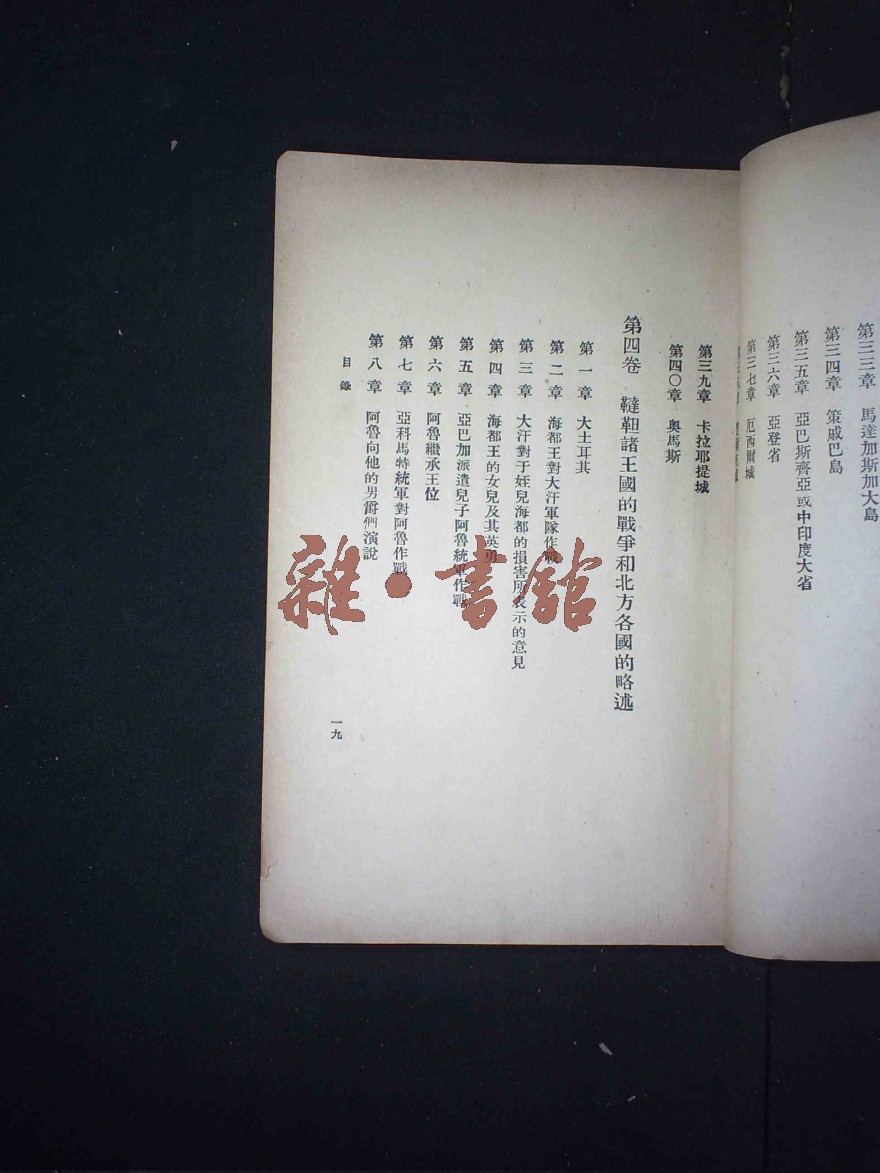 第三三章 馬達加斯加大島
第三四章 策戚巴島
第三五章 亞巴斯齊亞或中印度大省
第三六章 亞登省
第三七章 厄西爾城
第三九章 卡拉耶提城
第四〇章 奥馬斯
第四卷 韃靼諸王國的戰爭和北方各國的略述
第一章 大土耳其
第二章 海都王對大汗軍隊作戰
第三章 大汗對于姪兒海都的損害所表示的意見
第四章 海都王的女兒及其英勇
第五章 亞巴加派遣兒子阿魯統軍作戰
第六章 阿魯繼承王位
第七章 亞科馬特統軍對阿魯作戰
第八章 阿魯向他的男爵們演說
目錄
一九
雜·書館